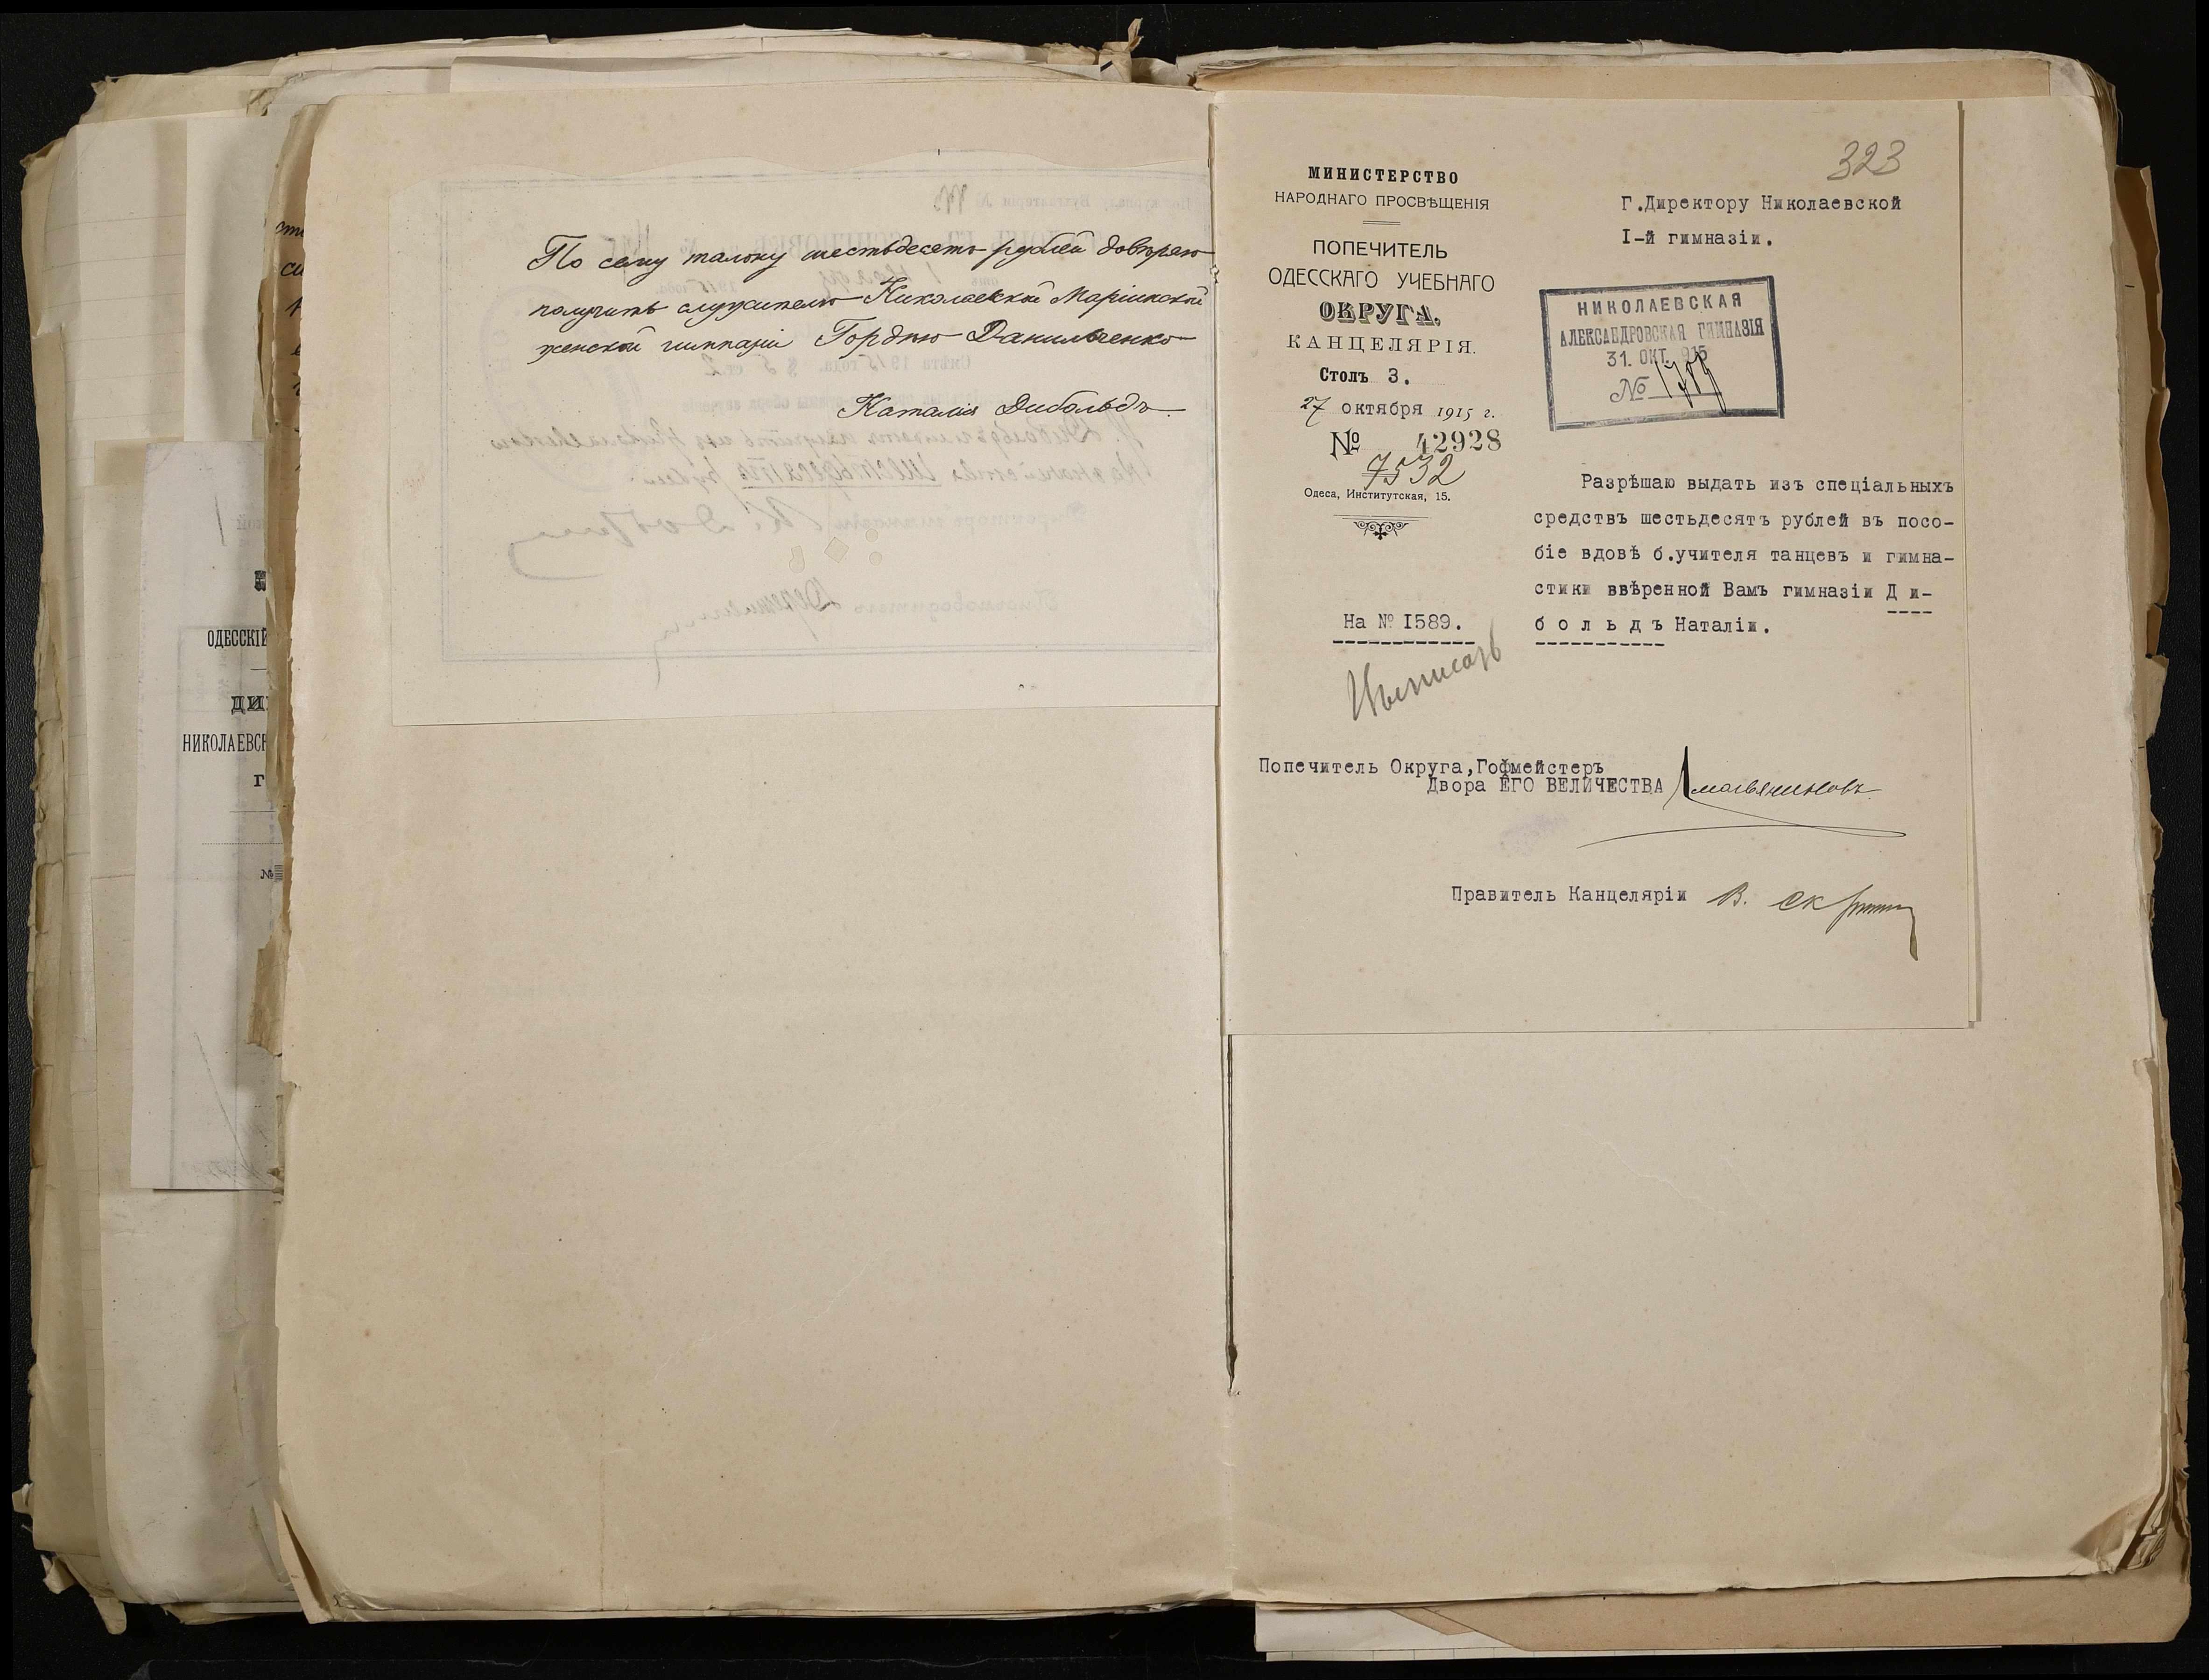 По сему талону шестьдесятъ рублей довѣряю
получить служителю Николаевской Маріинской
женской гимназіи Гордѣю Данильченко
Наталія Дибольдъ.
ОДЕССКІЙ
НИКОЛАЕВСК
№
323
МИНИСТЕРСТВО
НАРОДНАГО ПРОСВѢЩЕНІЯ
ПОПЕЧИТЕЛЬ
ОДЕССКАГО УЧЕБНАГО
ОКРУГА.
КАНЦЕЛЯРІЯ.
Столъ 3.
27 октября 1915 г.
№ 42928
7532
Одеса, Институтская, 15.
На № I589.
Выписать
Г.Директору Николаевской
I-й гимназіи.
НИКОЛАЕВСКАЯ
АЛЕКСАНДРОВСКАЯ ГИМНАЗІЯ
31. ОКТ. 915
№ 1709
Разрѣшаю выдать изъ спеціальныхъ
средствъ шестьдесятъ рублей въ посо-
біе вдовѣ б.учителя танцевъ и гимна-
стики ввѣренной Вамъ гимназіи Д и-
б о л ь д ъ Наталіи.
Попечитель Округа,Гофмейстеръ
Двора ЕГО ВЕЛИЧЕСТВА
Правитель Канцеляріи В.